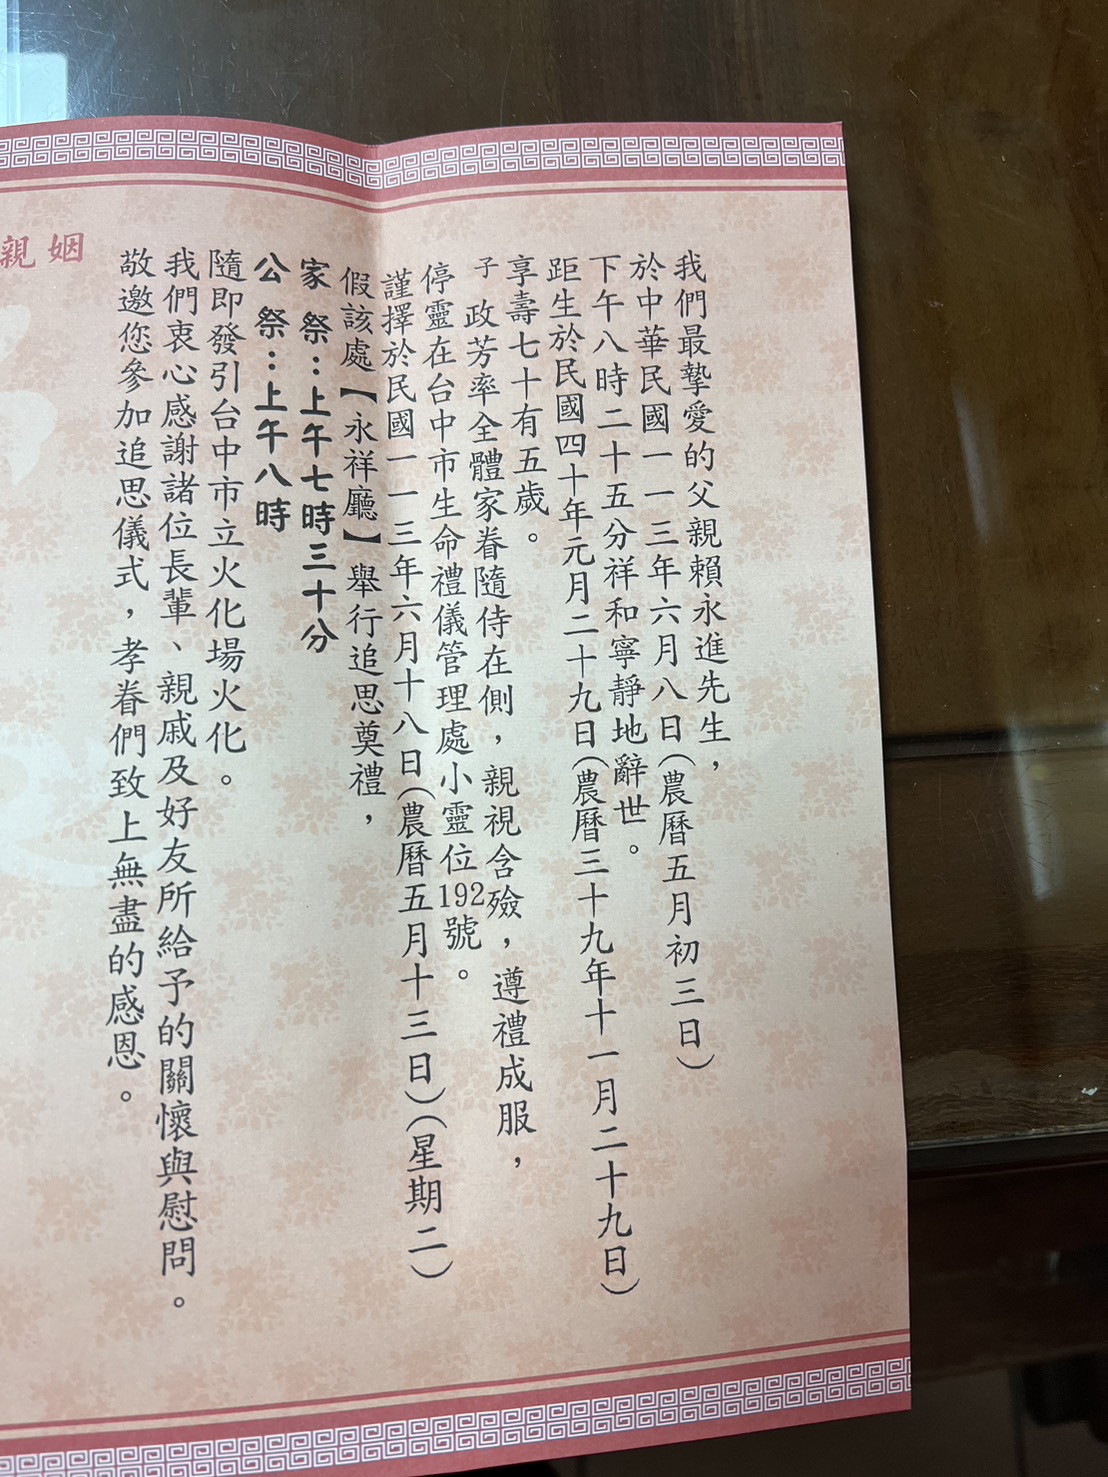 我們最摯愛的父親賴永進先生，
於中華民國一一三年六月八日（農曆五月初三日）
下午八時二十五分祥和寧靜地辭世。
距生於民國四十年元月二十九日（農曆三十九年十一月二十九日）
享壽七十有五歲。
子 政芳率全體家眷隨侍在側，親視含殮，遵禮成服，
停靈在台中市生命禮儀管理處小靈位192號。
謹擇於民國一一三年六月十八日（農曆五月十三日）（星期二）
假該處【永祥廳】舉行追思奠禮，
家 祭：上午七時三十分
公 祭：上午八時
隨即發引台中市立火化場火化。
我們衷心感謝諸位長輩、親戚及好友所給予的關懷與慰問。
敬邀您參加追思儀式，孝眷們致上無盡的感恩。
姻親